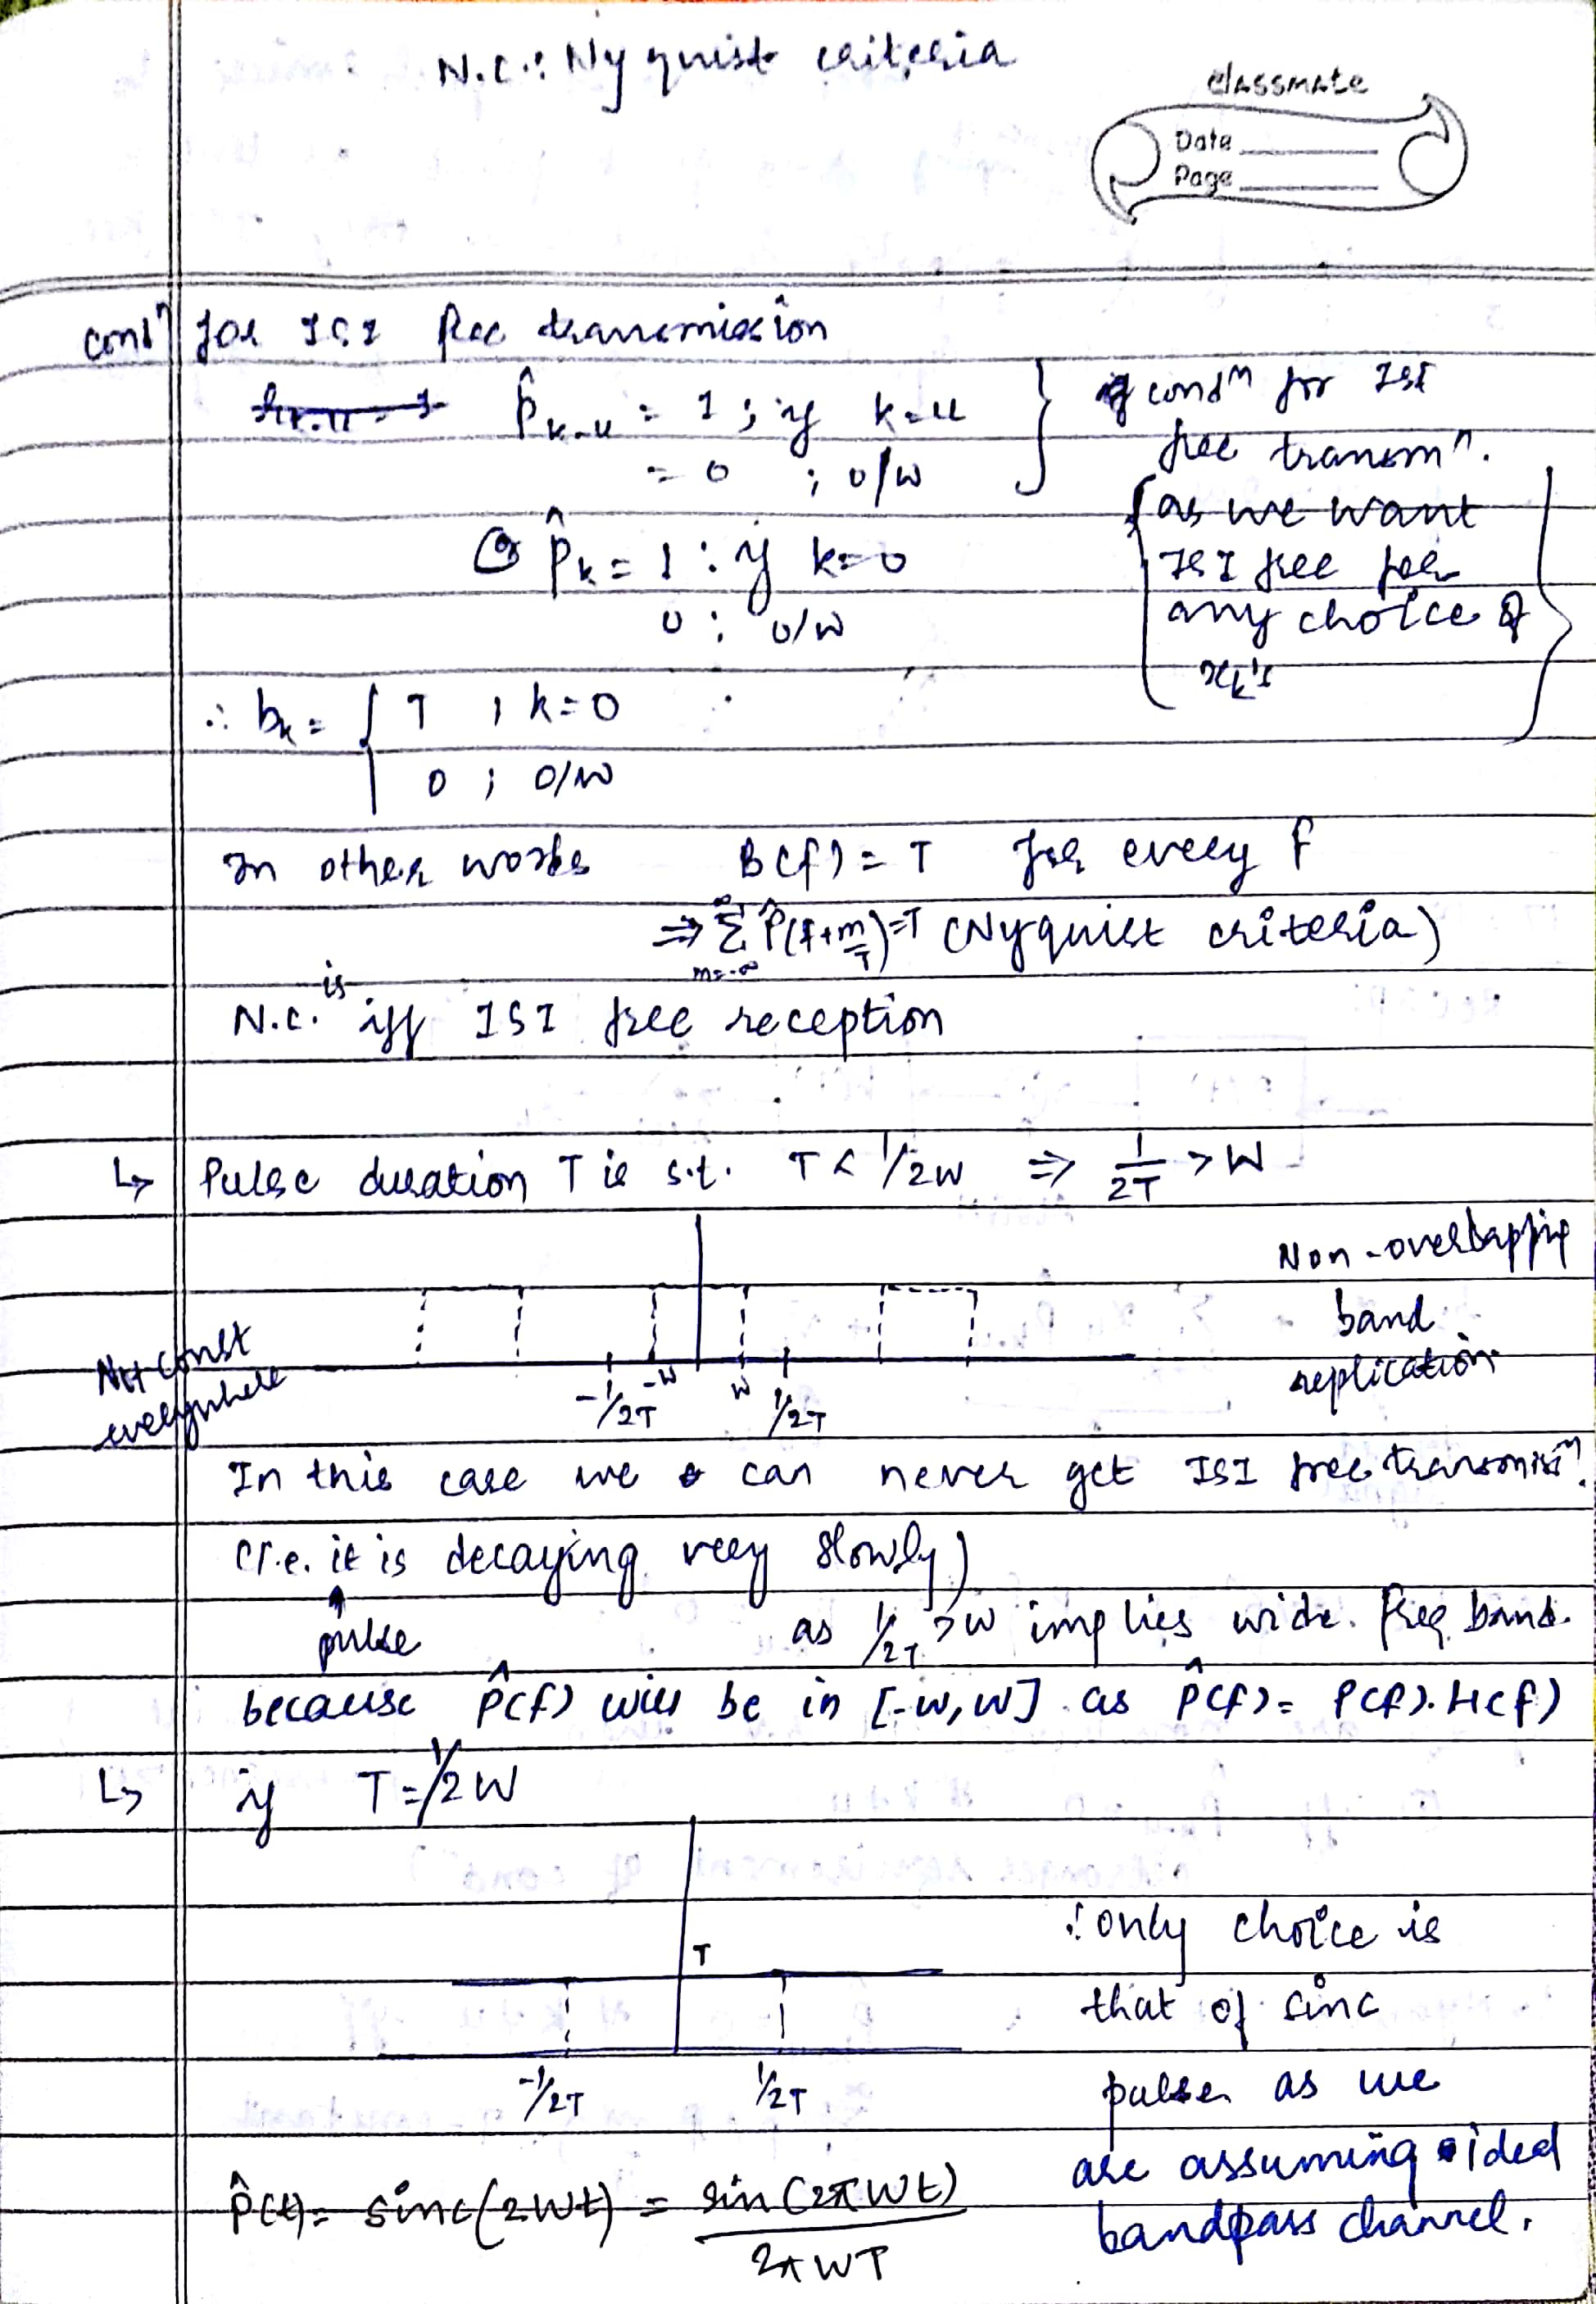 N.C.: Nyquist criteria
classmate
Date
Page
condⁿ for ISI free transmission
p̂ₖ₋ᵤ = 1 ; if k=u
= 0 ; o/w
condⁿ for ISI
free transmⁿ.
{as we want
ISI free for
any choice of
xₖ's}
p̂ₖ = 1 : if k=0
0 : o/w
∴ bₖ = { T , k=0
0 ; o/w
In other works B(f) = T for every f
⇒ Σ_{m=-∞}^{∞} P̂(f+m/T)=T (Nyquist criteria)
N.C. is iff ISI free reception
↳ Pulse duration T is s.t. T < 1/2W ⇒ 1/2T > W
Non-overlapping
band
replication
Not const
everywhere
-1/2T -W W 1/2T
In this case we can never get ISI free transmissⁿ.
(i.e. it is decaying very slowly)
pulse
as 1/2T >W implies wide. freq band.
because P̂(f) will be in [-W,W] as P̂(f)= P(f).H(f)
↳ if T=1/2W
T
-1/2T 1/2T
∴ only choice is
that of sinc
pulse as we
are assuming ideal
bandpass channel.
p̂(t)= sinc(2Wt) = sin(2πWt)/2πWT